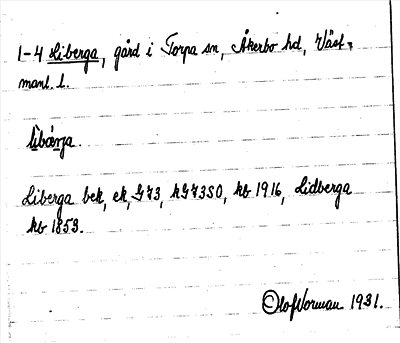 1-4 Liberga, gård i Torpa sn, Åkerbo hd, Väst-
manl. l.
Liberga bek, ek, G73, hG73SO, kb 1916, Lidberga
kb 1853.
Olof Norman 1931.